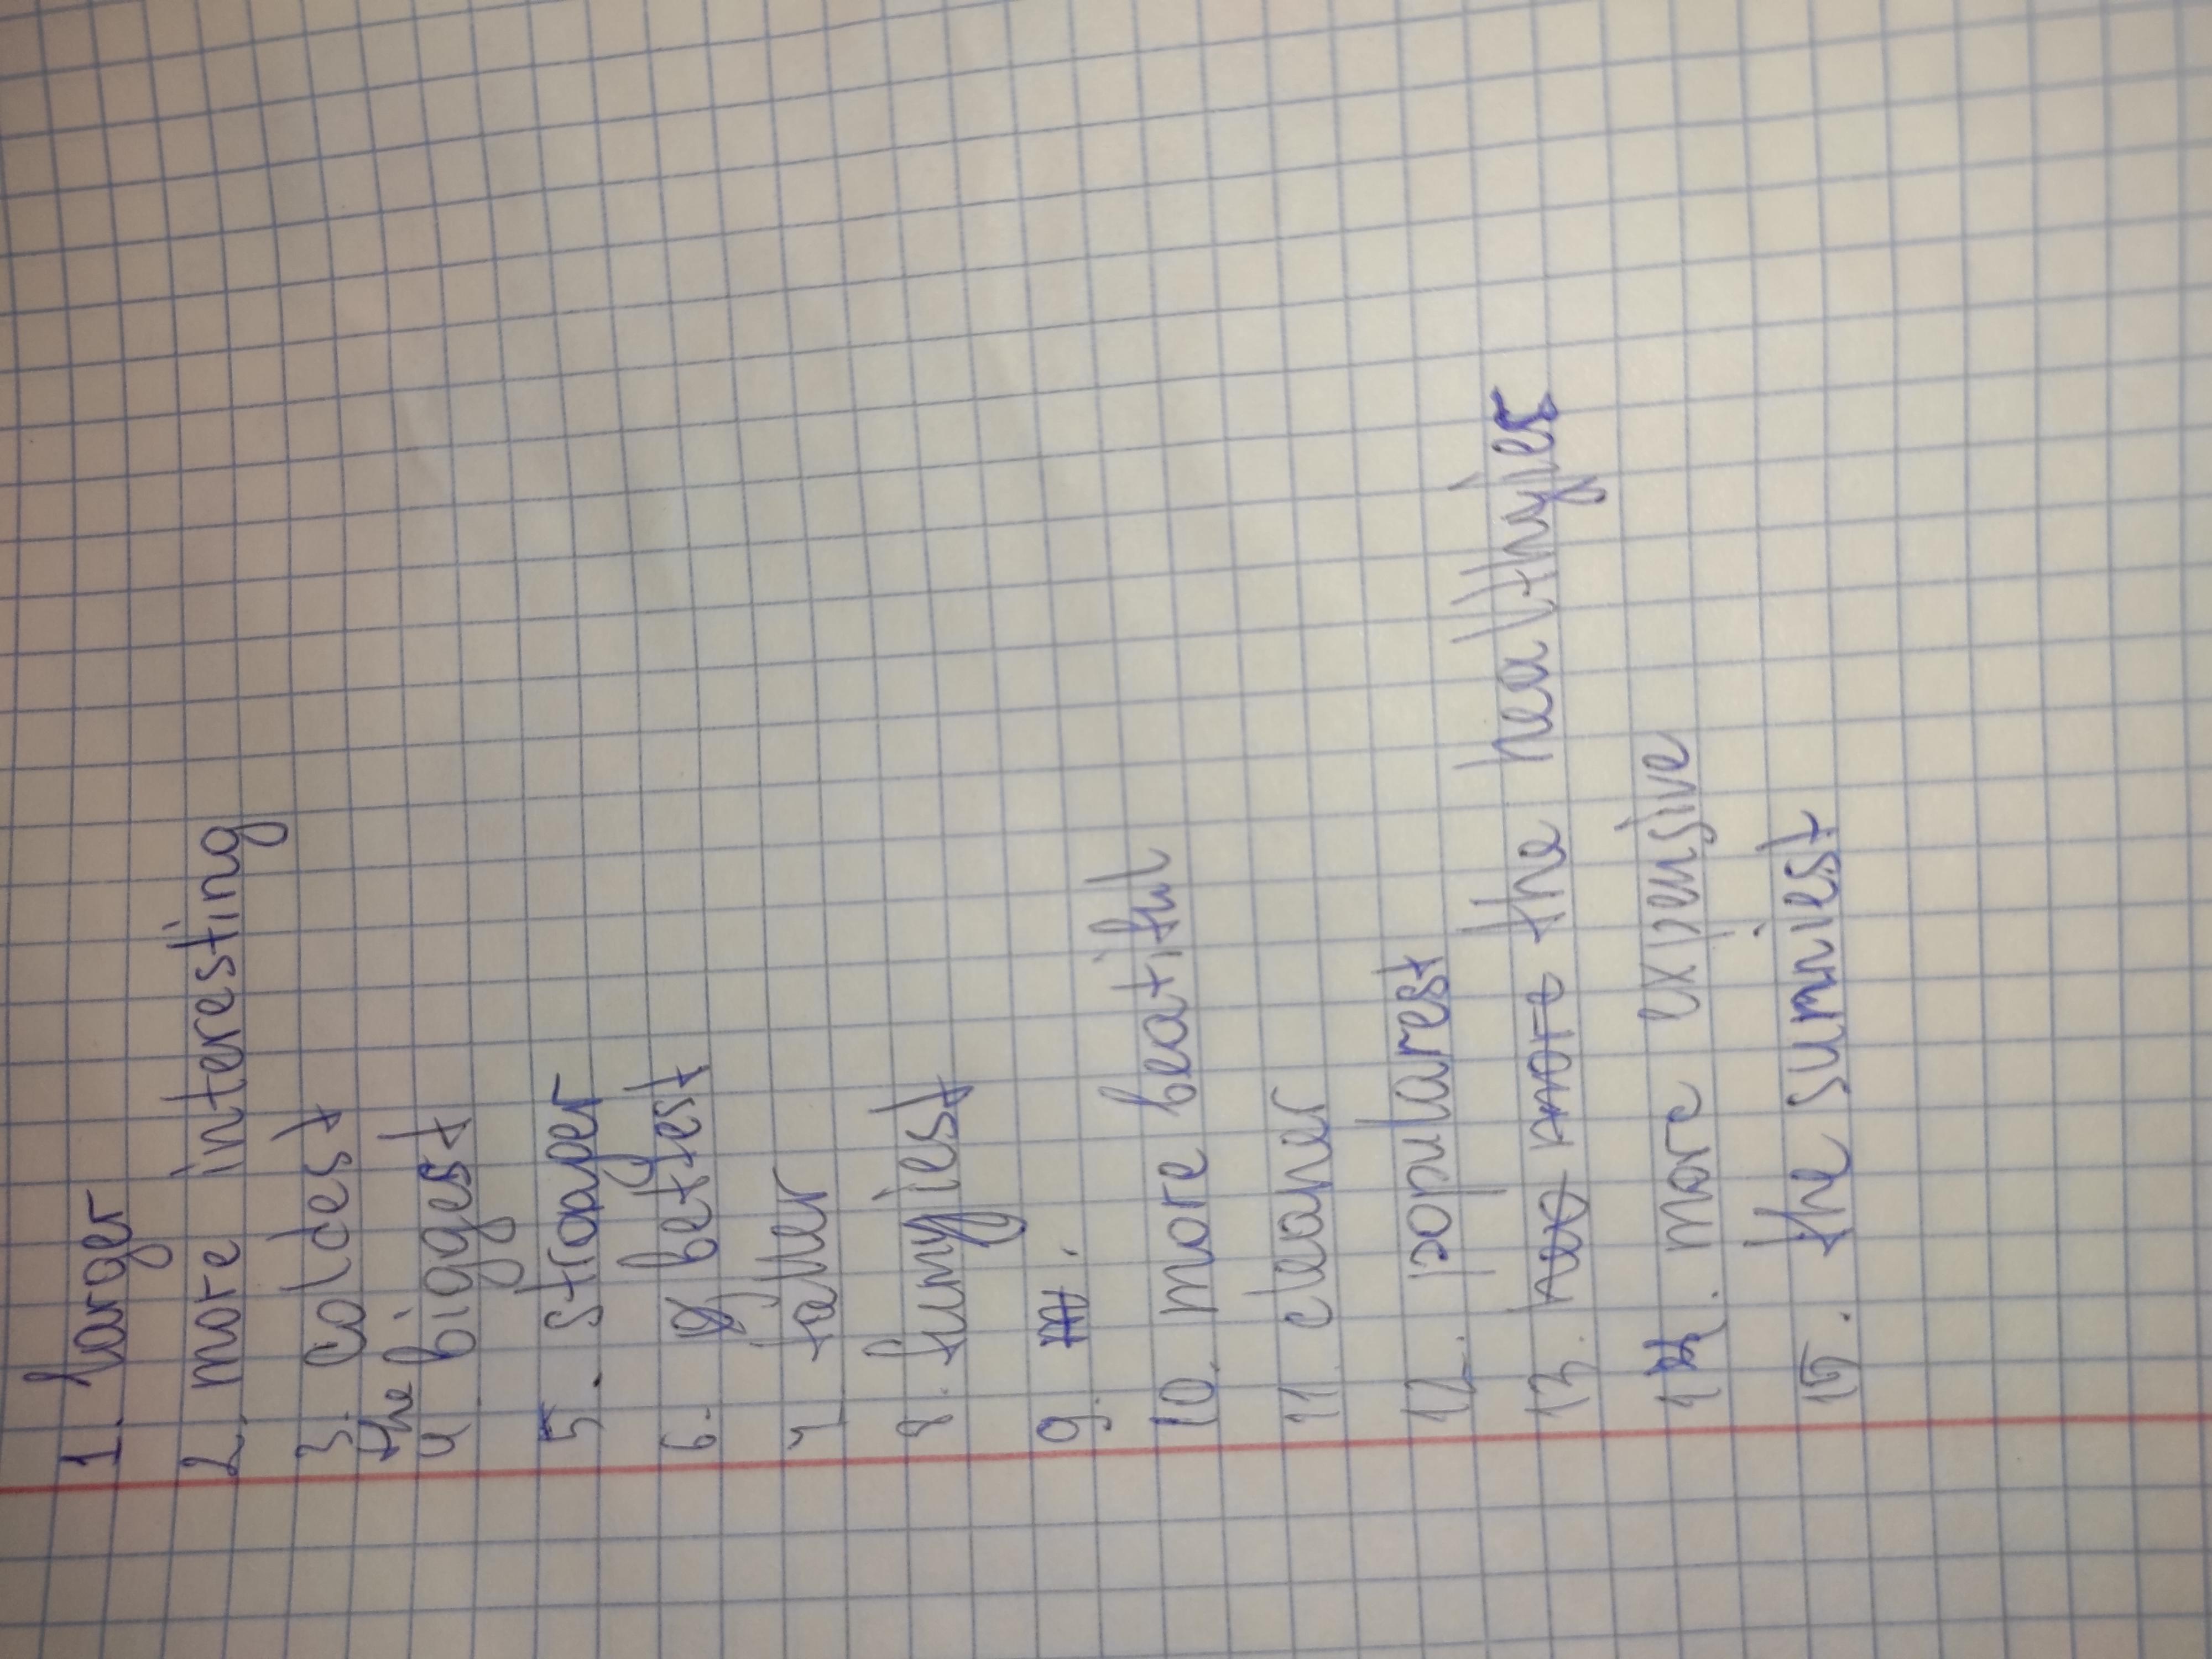 1. larger
2. more interesting
3. coldest
the
4. biggest
5. stronger
6. bettest
7. taller
8. funnyiest
9.
10. more beatiful
11. cleaner
12. popularest
13. more the healthyier
14. more expensive
15. the sunniest